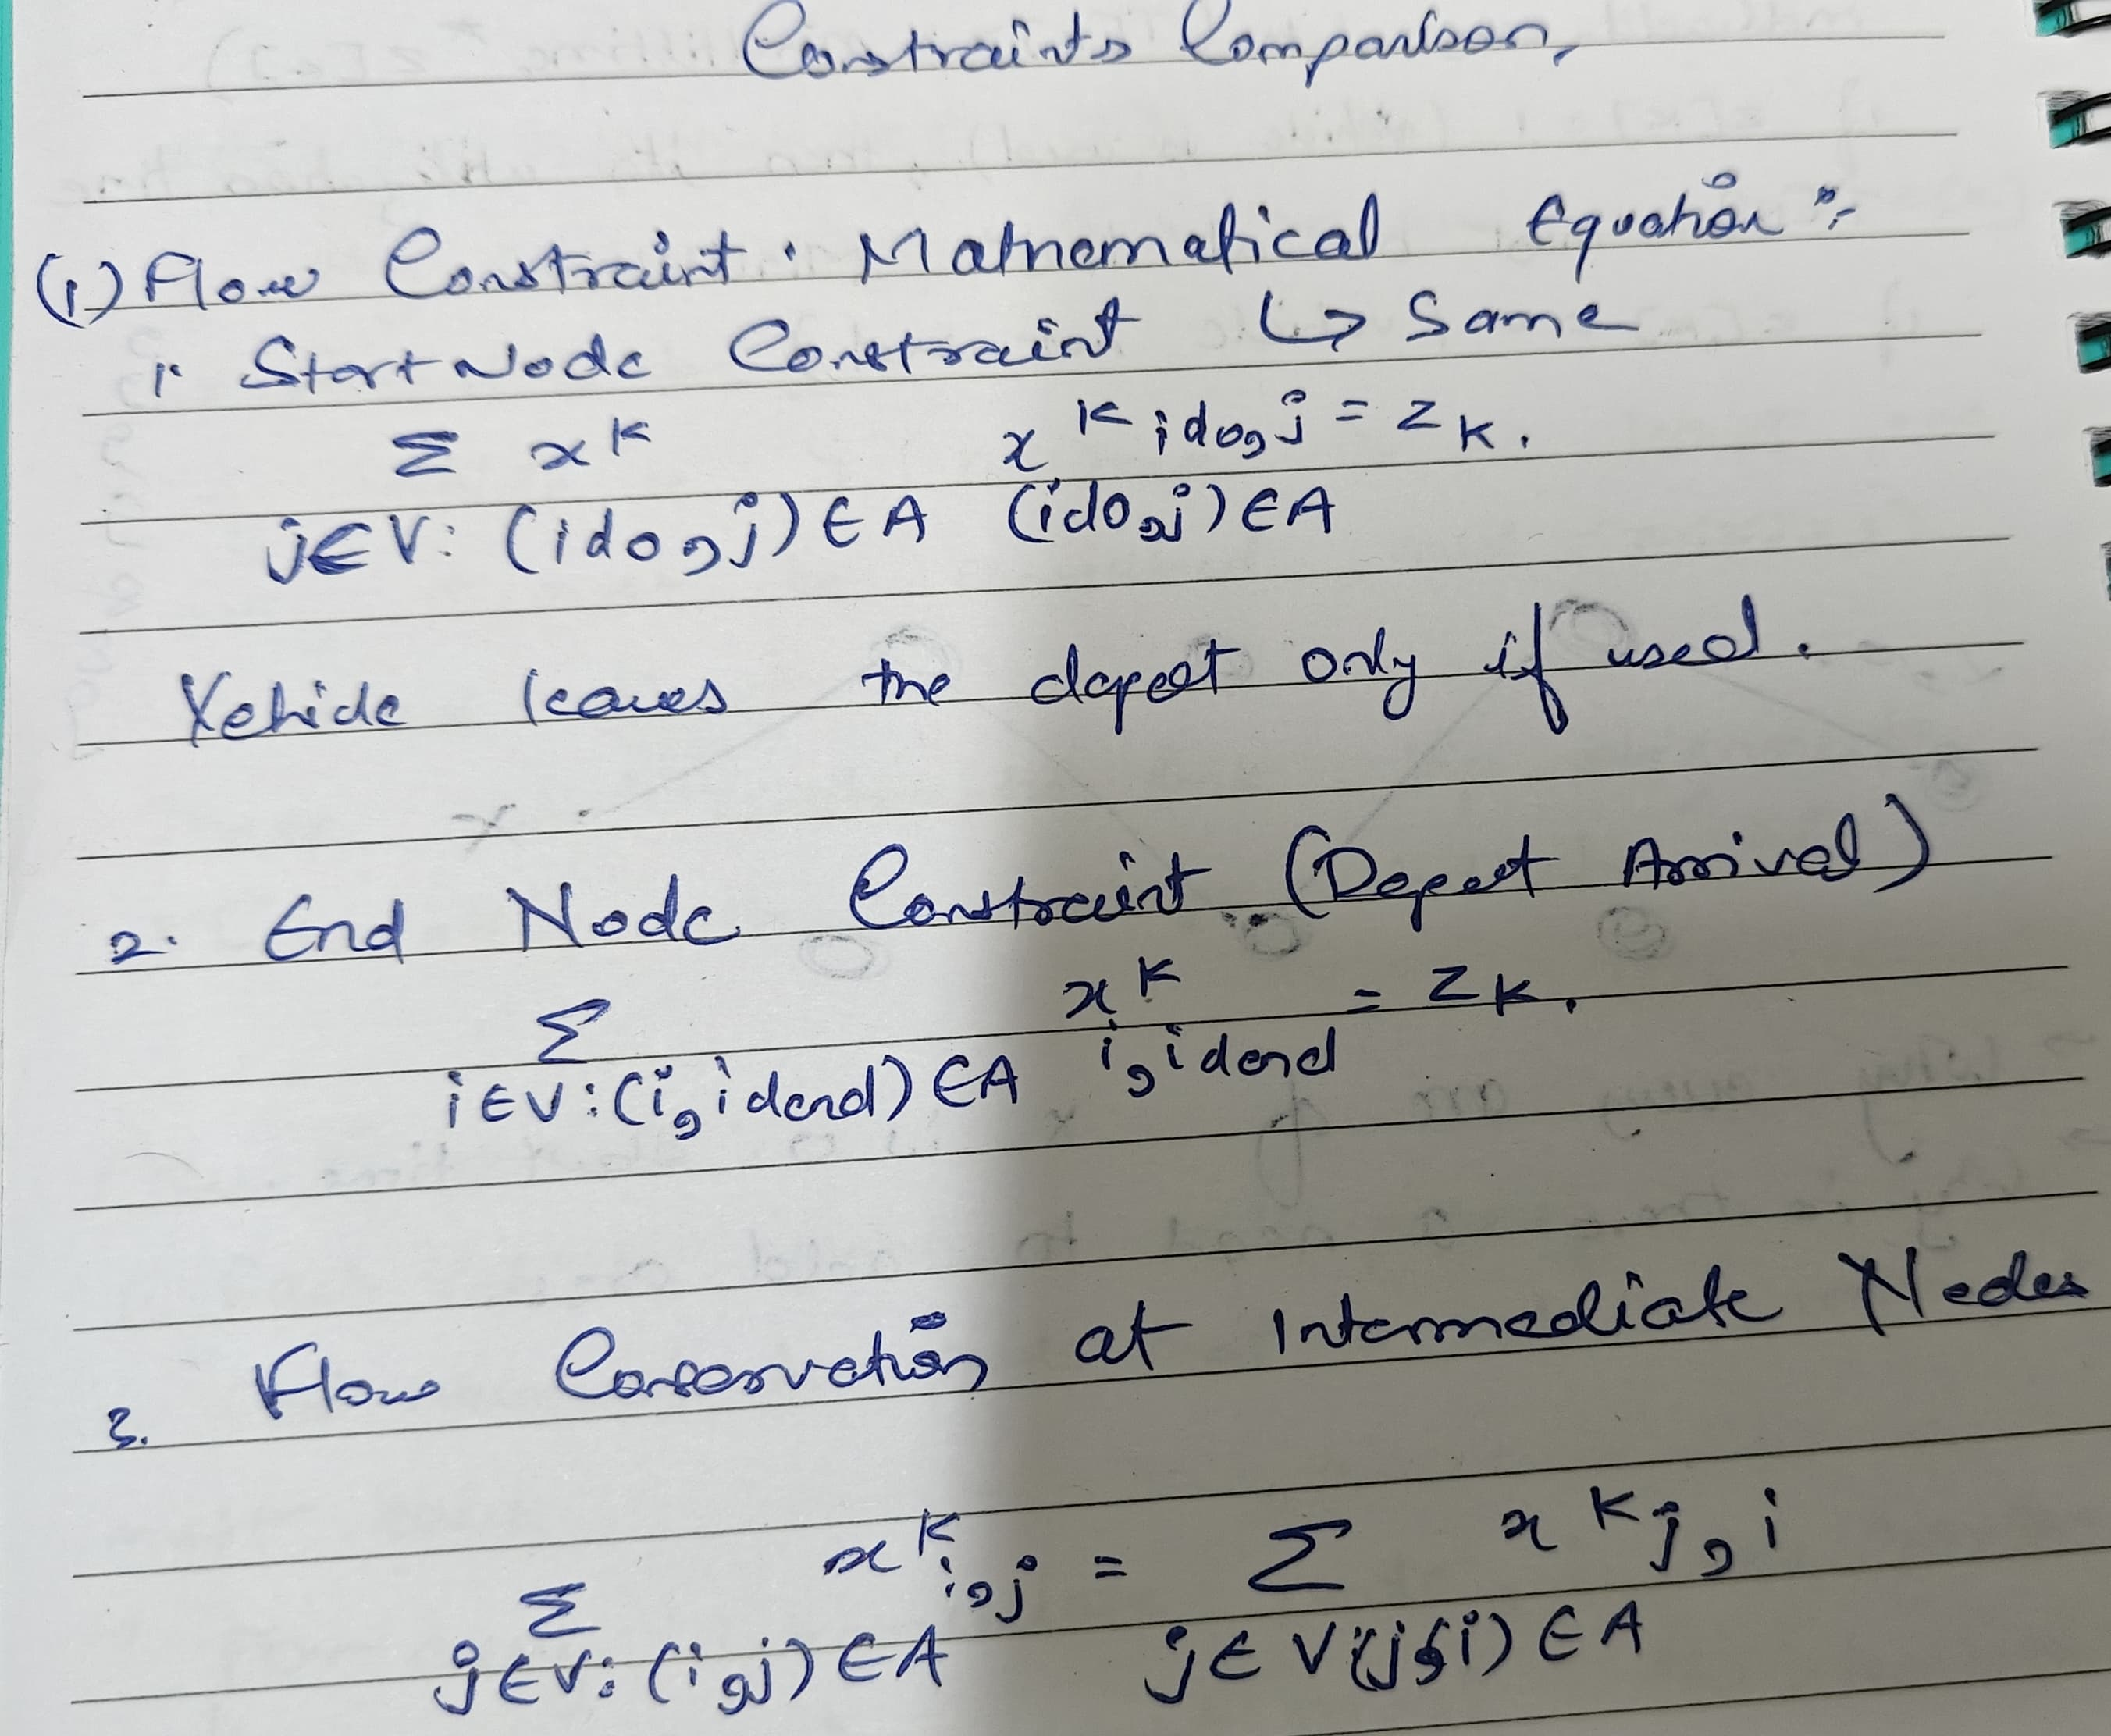 Constraints Comparison,
(1) Flow Constraint. Mathematical Equation :-
1. Start Node Constraint ↳ Same
Σ x^K x^K ido,j = z_K.
j∈V: (ido,j)∈A (ido,j)∈A
Vehicle leaves the depot only if used.
2. End Node Constraint (Depot Arrival)
Σ x^K = z_K.
i∈V:(i,idend)∈A i,idend
3. Flow Conservation at Intermediate Nodes
Σ x^K i,j = Σ x^K j,i
j∈V: (i,j)∈A j∈V:(j,i)∈A